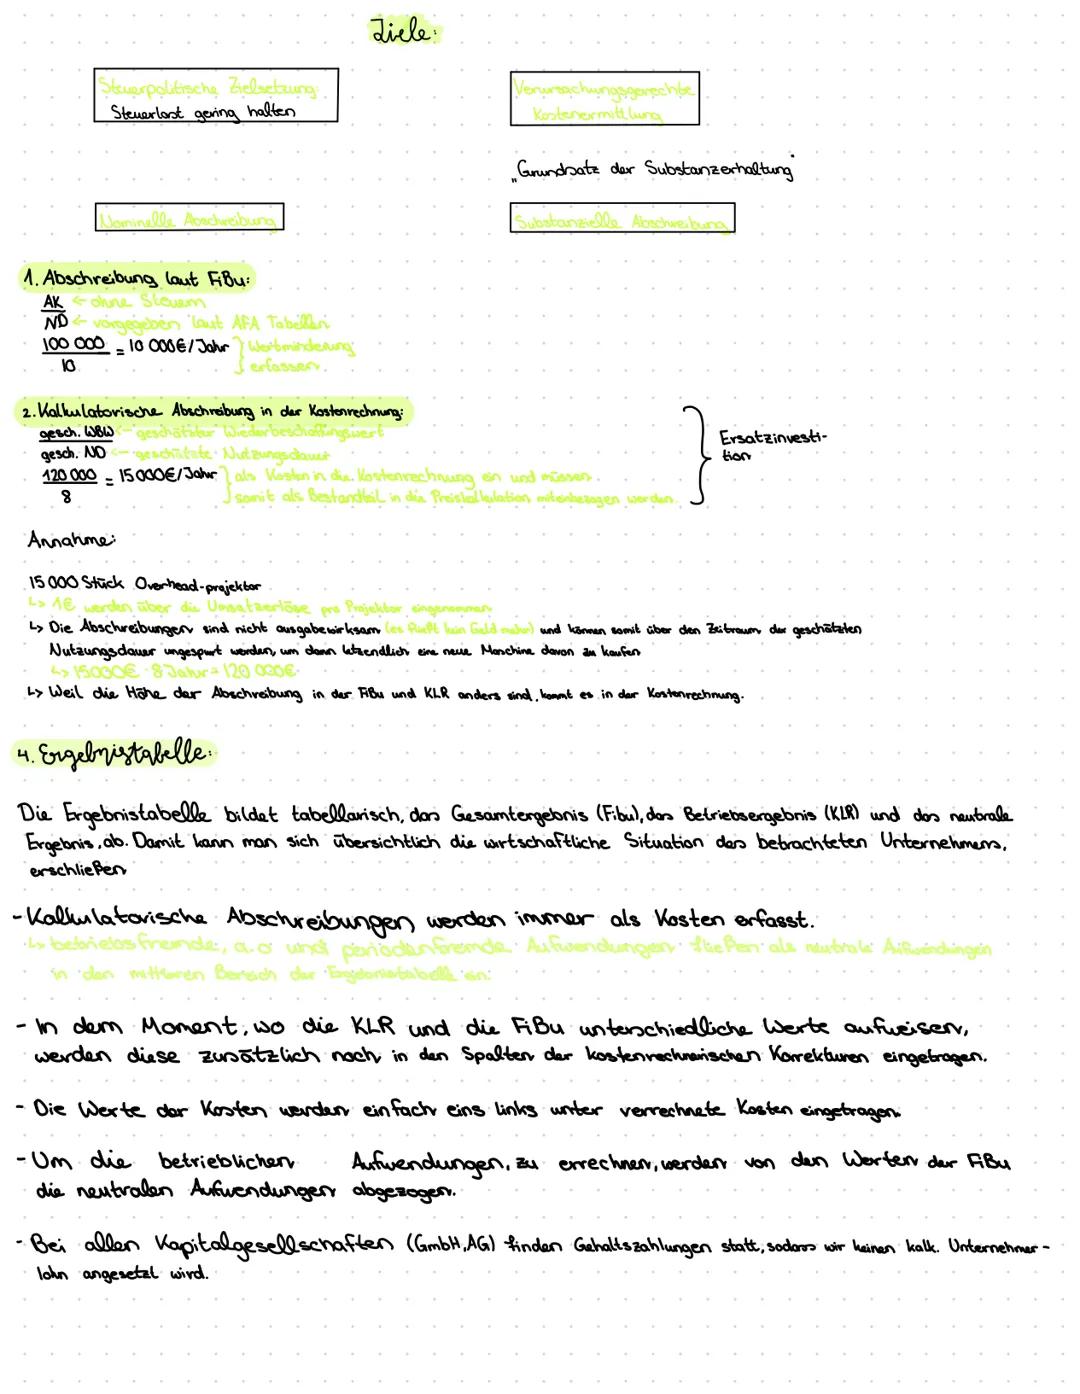 Ziele:
Steuerpolitische Zielsetzung:
Steuerlast gering halten
Verursachungsgerechte
Kostenermittlung
"Grundsatz der Substanzerhaltung"
Nominelle Abschreibung
Substanzielle Abschreibung
1. Abschreibung laut FiBu:
AK ← ohne Steuern
ND ← vorgegeben laut AFA Tabellen
100 000 = 10 000€/Jahr } Wertminderung
10 erfassen
2. Kalkulatorische Abschreibung in der Kostenrechnung:
gesch. WBW ← geschätzter Wiederbeschaffungswert
gesch. ND ← geschätzte Nutzungsdauer
120 000 = 15 000€/Jahr } als Kosten in die Kostenrechnung ein und müssen
8 somit als Bestandteil in die Preiskalkulation miteinbezogen werden.
Ersatzinvesti-
tion
Annahme:
15 000 Stück Overhead-projektor
↳ 1€ werden über die Umsatzerlöse pro Projektor eingenommen
↳ Die Abschreibungen sind nicht ausgabewirksam (es fließt kein Geld mehr) und können somit über den Zeitraum der geschätzten
Nutzungsdauer angespart werden, um dann letzendlich eine neue Maschine davon zu kaufen
↳ 15000€ · 8 Jahre = 120 000€
↳ Weil die Höhe der Abschreibung in der FiBu und KLR anders sind, kommt es in der Kostenrechnung.
4. Ergebnistabelle:
Die Ergebnistabelle bildet tabellarisch, das Gesamtergebnis (Fibu), das Betriebsergebnis (KLR) und das neutrale
Ergebnis, ab. Damit kann man sich übersichtlich die wirtschaftliche Situation des betrachteten Unternehmens,
erschließen
- Kalkulatorische Abschreibungen werden immer als Kosten erfasst.
↳ betriebsfremde, a.o und periodenfremde Aufwendungen fließen als neutrale Aufwendungen
in den mittleren Bereich der Ergebnistabelle ein.
- In dem Moment, wo die KLR und die FiBu unterschiedliche Werte aufweisen,
werden diese zusätzlich noch in den Spalten der kostenrechnerischen Korrekturen eingetragen.
- Die Werte der Kosten werden einfach eins links unter verrechnete Kosten eingetragen.
- Um die betrieblichen Aufwendungen, zu errechnen, werden von den Werten der FiBu
die neutralen Aufwendungen abgezogen.
- Bei allen Kapitalgesellschaften (GmbH, AG) finden Gehaltszahlungen statt, sodass wir keinen kalk. Unternehmer-
lohn angesetzt wird.